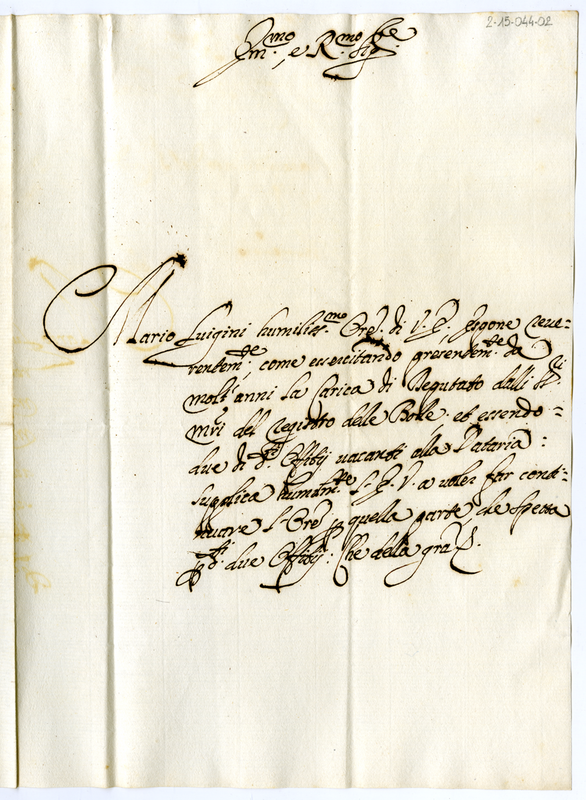 2-15-044-02
Ill.mo e R.mo Sig.re
Mario Luigini humiliss.mo Ore. di V. S. espone reue-
rentem.te, come essercitando presentem.te da
molt'anni la Carica di Deputato dalli SS.ri
Mri del Registro delle Bolle, et essendo-
due di d.i Offitij uacanti alla Dataria:
supplica humilm.te S. V. a uoler far conti-
nuare l'Ore p quella parte, che spetta
p d.i due Offitij: Che della gra